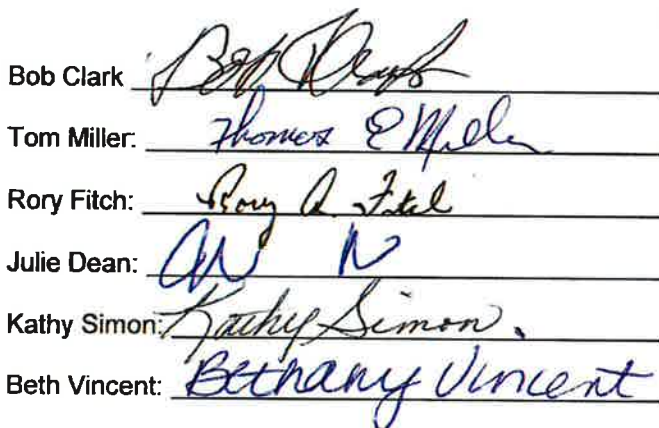 Bob Clark Bob Clark
Tom Miller: Thomas E Miller
Rory Fitch: Rory A. Fitch
Julie Dean:
Kathy Simon: Kathy Simon.
Beth Vincent: Bethany Vincent